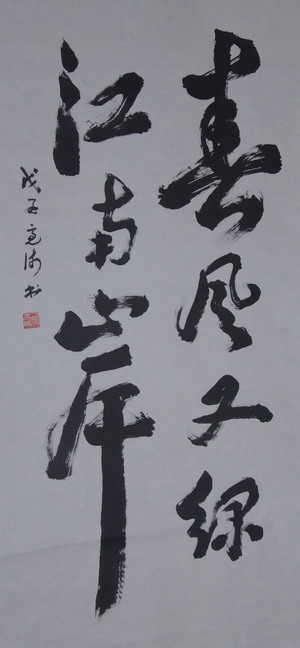 春风又绿
江南岸
戊子
书